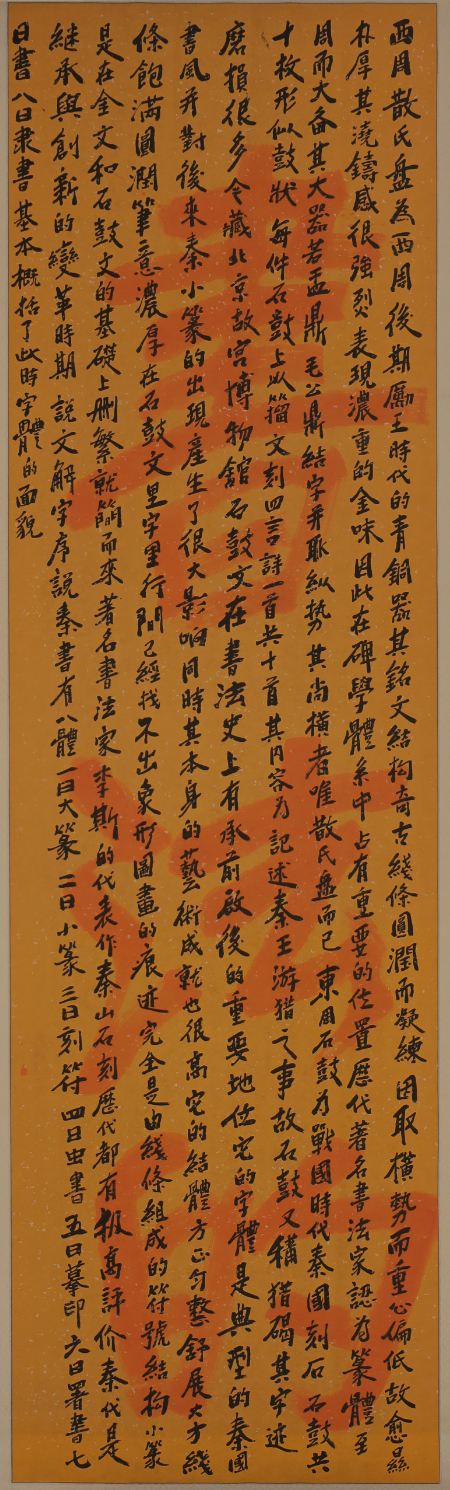 西周散氏盤為西周後期厲王時代的青銅器其銘文結构奇古綫條圓潤而凝練因取橫勢而重心偏低故愈显
朴厚其澆鑄感很強烈表現濃重的金味因此在碑學體系中占有重要的位置歷代著名書法家認為篆體至
周而大备其大器若盂鼎毛公鼎結字并取縱势其尚橫者唯散氏盤而已東周石鼓為戰國時代秦國刻石石鼓共
十枚形似鼓狀每件石鼓上以籀文刻四言詩一首共十首其内容為記述秦王游猎之事故石鼓又稱猎碣其字迹
磨損很多今藏北京故宮博物館石鼓文在書法史上有承前啟後的重要地位它的字體是典型的秦國
書風并對後來秦小篆的出現產生了很大影响同時其本身的藝術成就也很高它的結體方正匀整舒展大方綫
條飽满圓潤筆意濃厚在石鼓文里字里行間已經找不出象形圖畫的痕迹完全是由綫條組成的符號結构小篆
是在金文和石鼓文的基礎上刪繁就簡而來著名書法家李斯的代表作泰山石刻歷代都有极高評价秦代是
継承與創新的變革時期說文解字序說秦書有八體一曰大篆二曰小篆三曰刻符四曰虫書五曰摹印六曰署書七
曰書八曰隶書基本概括了此時字體的面貌